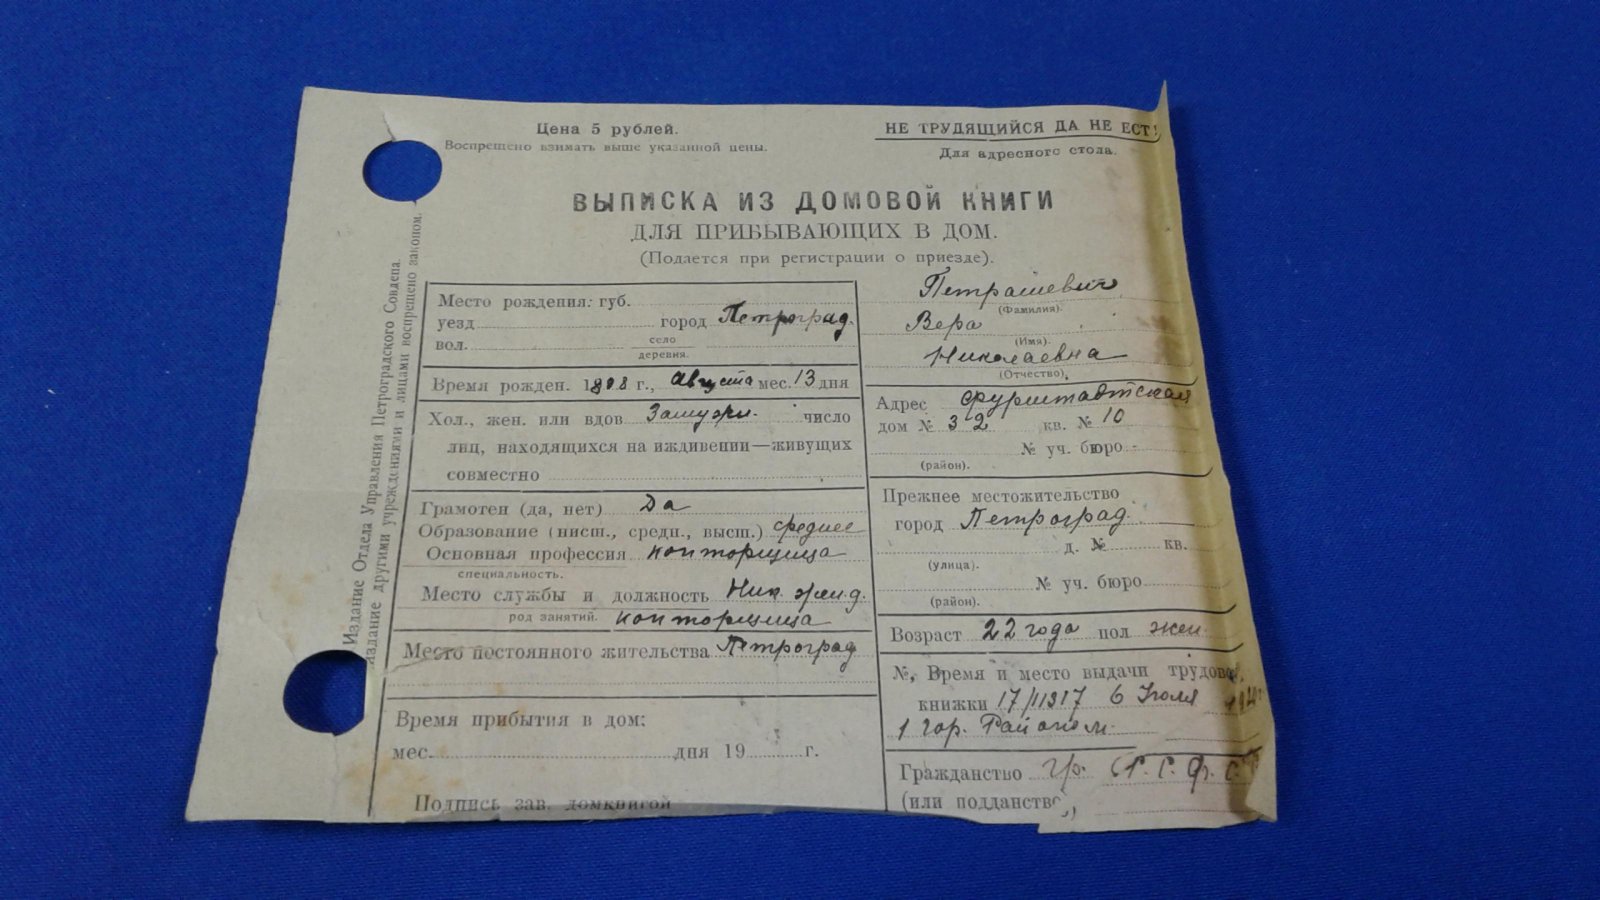 Цена 5 рублей.
Воспрещено взимать выше указанной цены.
НЕ ТРУДЯЩИЙСЯ ДА НЕ ЕСТ!
Для адресного стола.
ВЫПИСКА ИЗ ДОМОВОЙ КНИГИ
ДЛЯ ПРИБЫВАЮЩИХ В ДОМ.
(Подается при регистрации о приезде).
Издание Отдела Управления Петроградского Совдепа.
Издание другими учреждениями и лицами воспрещено законом.
Место рождения: губ.
уезд город Петроград.
вол. село
деревня.
Время рожден. 1898 г., Августа мес. 13 дня
Хол., жен. или вдов Замужн. число
лиц, находящихся на иждивении—живущих
совместно
Грамотен (да, нет) Да
Образование (нисш., средн., высш.) среднее
Основная профессия конторщица
специальность.
Место службы и должность Ник. ж.д.
род занятий. конторщица
Место постоянного жительства Петроград
Время прибытия в дом:
мес. дня 19 г.
Подпись зав. домкнигой
Петрашевич
(Фамилия).
Вера
(Имя).
Николаевна
(Отчество).
Адрес Фурштадтская
дом № 32 кв. № 10
№ уч. бюро
(район).
Прежнее местожительство
город Петроград
д. № кв.
(улица).
№ уч. бюро
(район).
Возраст 22 года пол жен.
№, Время и место выдачи трудовой
книжки 17/11317 6 Июля
1 гор. Районом
Гражданство гр. Р.С.Ф.С.Р.
(или подданство)